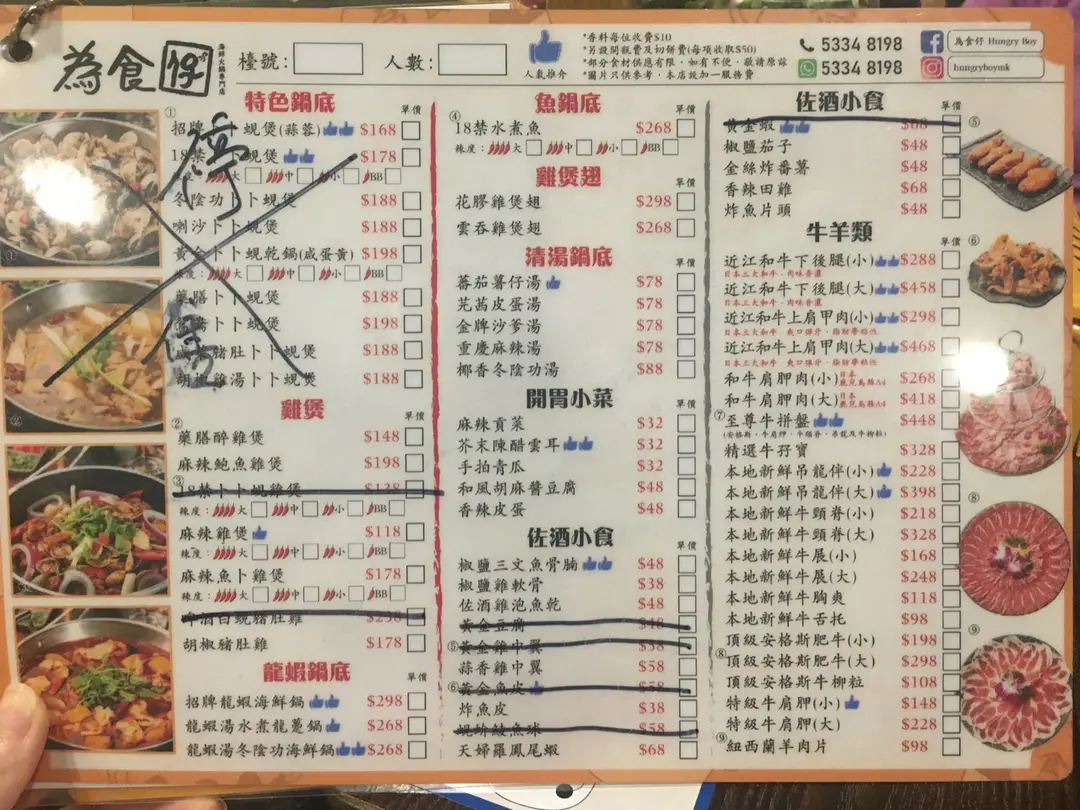 為食仔
海鮮火鍋專門店
檯號:
人數:
人氣推介
*香料每位收費$10
*另設開瓶費及切餅費(每項收取$50)
*部分食材供應有限，如有不便，敬請原諒
*圖片只供參考，本店設加一服務費
5334 8198
5334 8198
為食仔 Hungry Boy
hungryboymk
特色鍋底
單價
①
招牌卜卜蜆煲(蒜蓉) $168
18禁卜卜蜆煲 $178
辣度: 大 中 小 BB
冬陰功卜卜蜆煲 $188
喇沙卜卜蜆煲 $188
黃金卜卜蜆乾鍋(咸蛋黃) $198
辣度: 大 中 小 BB
藥膳卜卜蜆煲 $188
卜卜蜆煲 $198
豬肚卜卜蜆煲 $188
胡椒雞湯卜卜蜆煲 $188
停
雞煲
單價
②
藥膳醉雞煲 $148
麻辣鮑魚雞煲 $198
③
18禁卜卜蜆雞煲 $138
辣度: 大 中 小 BB
麻辣雞煲 $118
辣度: 大 中 小 BB
麻辣魚卜雞煲 $178
辣度: 大 中 小 BB
啤酒白蜆豬肚雞 $238
胡椒豬肚雞 $178
龍蝦鍋底
單價
招牌龍蝦海鮮鍋 $298
龍蝦湯水煮龍躉鍋 $268
龍蝦湯冬陰功海鮮鍋 $268
魚鍋底
單價
④
18禁水煮魚 $268
辣度: 大 中 小 BB
雞煲翅
單價
花膠雞煲翅 $298
雲吞雞煲翅 $268
清湯鍋底
單價
蕃茄薯仔湯 $78
芫茜皮蛋湯 $78
金牌沙爹湯 $78
重慶麻辣湯 $78
椰香冬陰功湯 $88
開胃小菜
單價
麻辣貢菜 $32
芥末陳醋雲耳 $32
手拍青瓜 $32
和風胡麻醬豆腐 $48
香辣皮蛋 $48
佐酒小食
單價
椒鹽三文魚骨腩 $48
椒鹽雞軟骨 $38
佐酒雞泡魚乾 $48
黃金豆腐 $48
⑤
黃金雞中翼 $58
蒜香雞中翼 $58
⑥
黃金魚皮 $58
炸魚皮 $38
蜆蚧鯪魚球 $58
天婦羅鳳尾蝦 $68
佐酒小食
單價
黃金蝦 $68
椒鹽茄子 $48
金絲炸番薯 $48
香辣田雞 $68
炸魚片頭 $48
牛羊類
單價
近江和牛下後腿(小) $288
日本三大和牛．肉味香濃
近江和牛下後腿(大) $458
日本三大和牛．肉味香濃
近江和牛上肩甲肉(小) $298
日本三大和牛．爽口彈牙．脂肪帶粘性
近江和牛上肩甲肉(大) $468
日本三大和牛．爽口彈牙．脂肪帶粘性
和牛肩胛肉(小) 日本鹿兒島縣A4 $268
和牛肩胛肉(大) 日本鹿兒島縣A4 $418
⑦
至尊牛拼盤 $448
精選牛孖寶 $328
本地新鮮吊龍伴(小) $228
本地新鮮吊龍伴(大) $398
本地新鮮牛頸脊(小) $218
本地新鮮牛頸脊(大) $328
本地新鮮牛展(小) $168
本地新鮮牛展(大) $248
本地新鮮牛胸爽 $118
本地新鮮牛舌托 $98
頂級安格斯肥牛(小) $198
⑧
頂級安格斯肥牛(大) $298
頂級安格斯牛柳粒 $108
特級牛肩胛(小) $148
特級牛肩胛(大) $228
⑨
紐西蘭羊肉片 $98
①
②
⑤
⑥
⑦
⑧
⑨